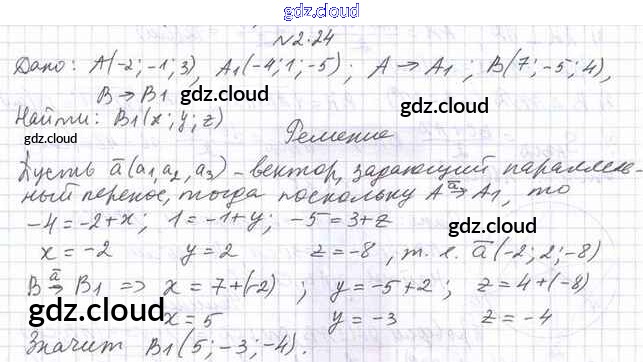 gdz.cloud
№2.24
Дано: A(-2; -1; 3), A1(-4; 1; -5); A → A1; B(7; -5; 4),
B → B1
gdz.cloud gdz.cloud
Найти: B1(x; y; z)
gdz.cloud
Решение
Пусть a̅(a1, a2, a3) - вектор, задающий параллель-
ный перенос, тогда поскольку A →a̅ A1, то
-4=-2+x; 1=-1+y; -5=3+z
gdz.cloud
x=-2 y=2 z=-8, т. е. a̅(-2; 2; -8)
B →a̅ B1 => x=7+(-2); y=-5+2; z=4+(-8)
gdz.cloud gdz.cloud
x=5 y=-3 z=-4
Значит B1(5; -3; -4).